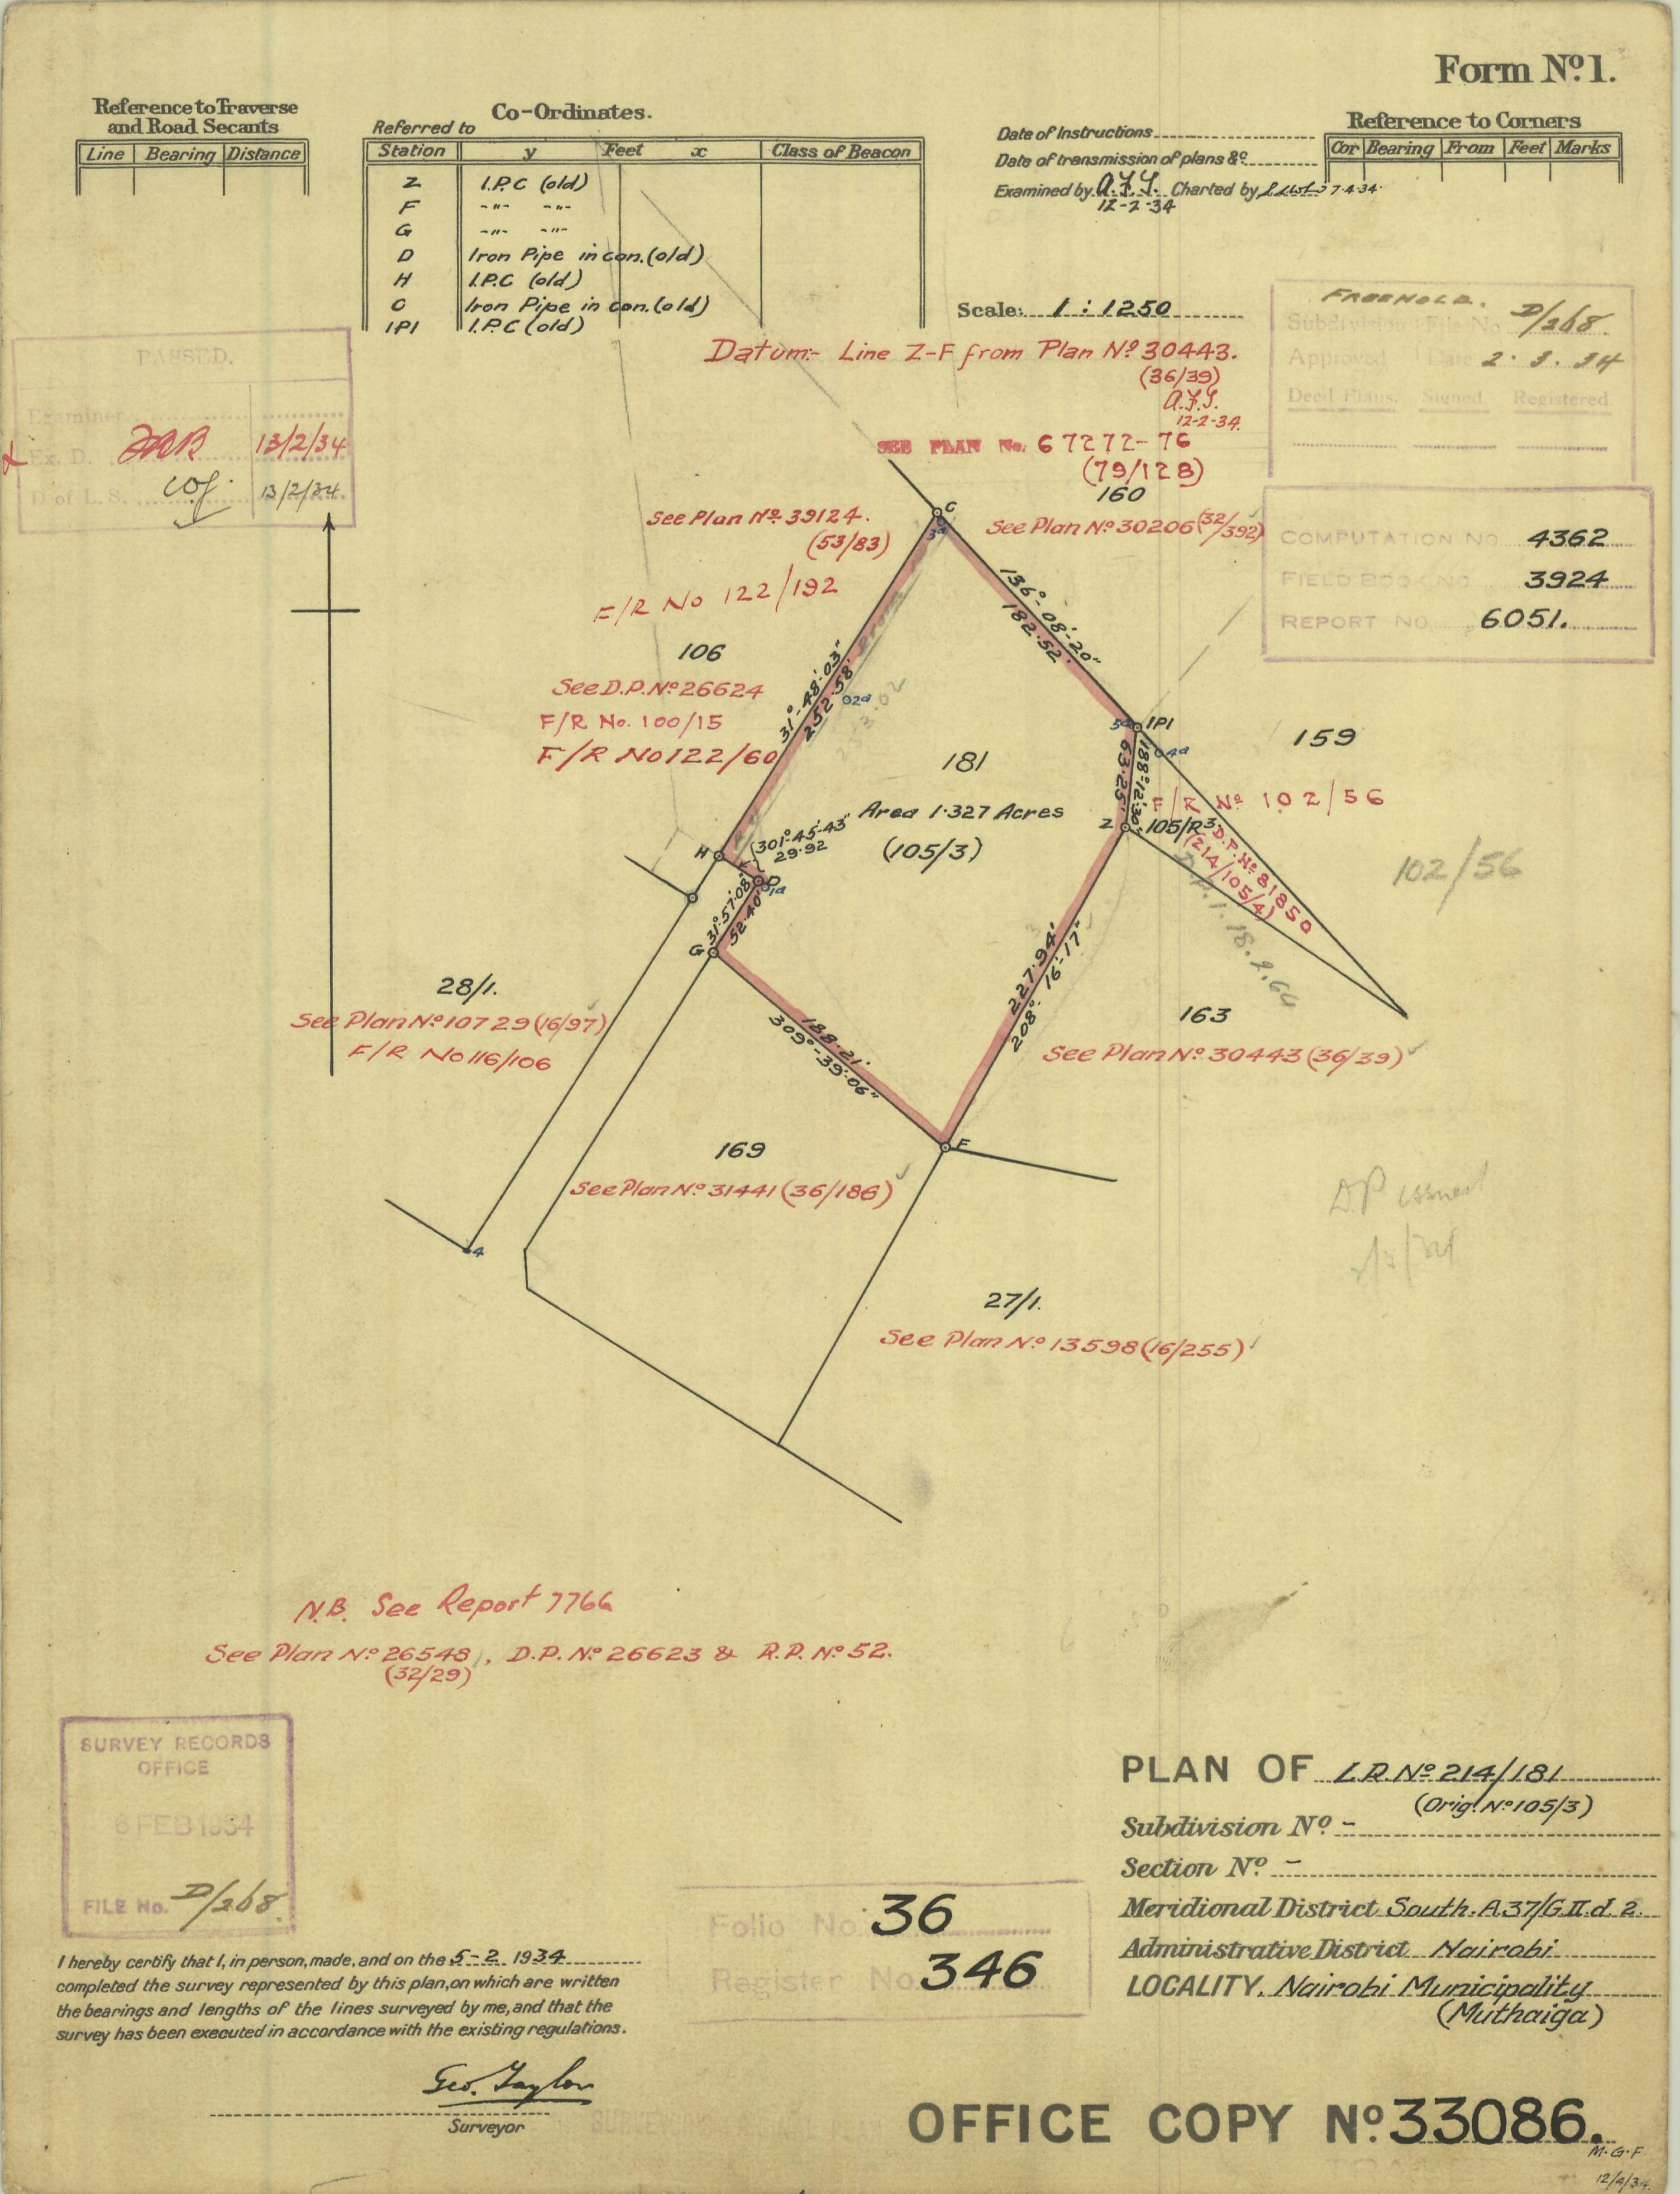 Form Nº 1.
Reference to Traverse
and Road Secants
Line Bearing Distance
Co-Ordinates.
Referred to
Station y Feet x Class of Beacon
Z I.P.C (old)
F -"- -"-
G -"- -"-
D Iron Pipe in con. (old)
H I.P.C (old)
C Iron Pipe in con. (old)
IPI I.P.C (old)
Date of Instructions
Date of transmission of plans &c
Examined by A.F.Y. Charted by 7.4.34.
12-2-34
Reference to Corners
Cor Bearing From Feet Marks
Scale: 1 : 1250
FREEHOLD.
Subdivision File No D/268.
Approved Date 2. 3. 34
Deed Plans. Signed. Registered.
Datum:- Line Z-F from Plan Nº 30443.
(36/39)
A.F.Y.
12-2-34.
PASSED.
Examiner
Ex. D. 13/2/34
D of L. S. 13/2/34.
SEE PLAN No. 67272-76
(79/128)
160
See Plan Nº 30206 (32/392)
COMPUTATION NO 4362
FIELD BOOK NO 3924
REPORT NO 6051.
See Plan Nº 39124.
(53/83)
F/R No 122/192
106
See D.P. Nº 26624
F/R No. 100/15
F/R No 122/60
C
3a
136°-08'-20"
182.52'
31°-48'-03"
252.58'
253.02
02a
5a IPI
04a
159
188°-12'-30"
63.25'
F/R Nº 102/56
Z 105/R3
D.P. Nº 81850
(214/105/4)
102/56
181
Area 1.327 Acres
(105/3)
H
301°-45'-43"
29.92
D
1a
31°57'08"
52.40'
G
227.94'
208°-16'-17"
188.21'
309°-39'-06"
F
28/1.
See Plan Nº 10729 (16/97)
F/R No 116/106
163
See Plan Nº 30443 (36/39)
169
See Plan Nº 31441 (36/186)
4
DP issued
27/1.
See Plan Nº 13598 (16/255)
N.B. See Report 7766
See Plan Nº 26548, D.P. Nº 26623 & R.P. Nº 52.
(32/29)
SURVEY RECORDS
OFFICE
6 FEB 1934
FILE No. D/268.
I hereby certify that I, in person, made, and on the 5-2 1934
completed the survey represented by this plan, on which are written
the bearings and lengths of the lines surveyed by me, and that the
survey has been executed in accordance with the existing regulations.
Geo. Taylor
Surveyor
Folio No. 36
Register No. 346
PLAN OF L.R. Nº 214/181
(Orig. Nº 105/3)
Subdivision Nº -
Section Nº -
Meridional District South. A37/G.II.d.2.
Administrative District Nairobi
LOCALITY. Nairobi Municipality
(Muthaiga)
OFFICE COPY Nº 33086.
M.G.F
12/4/34.